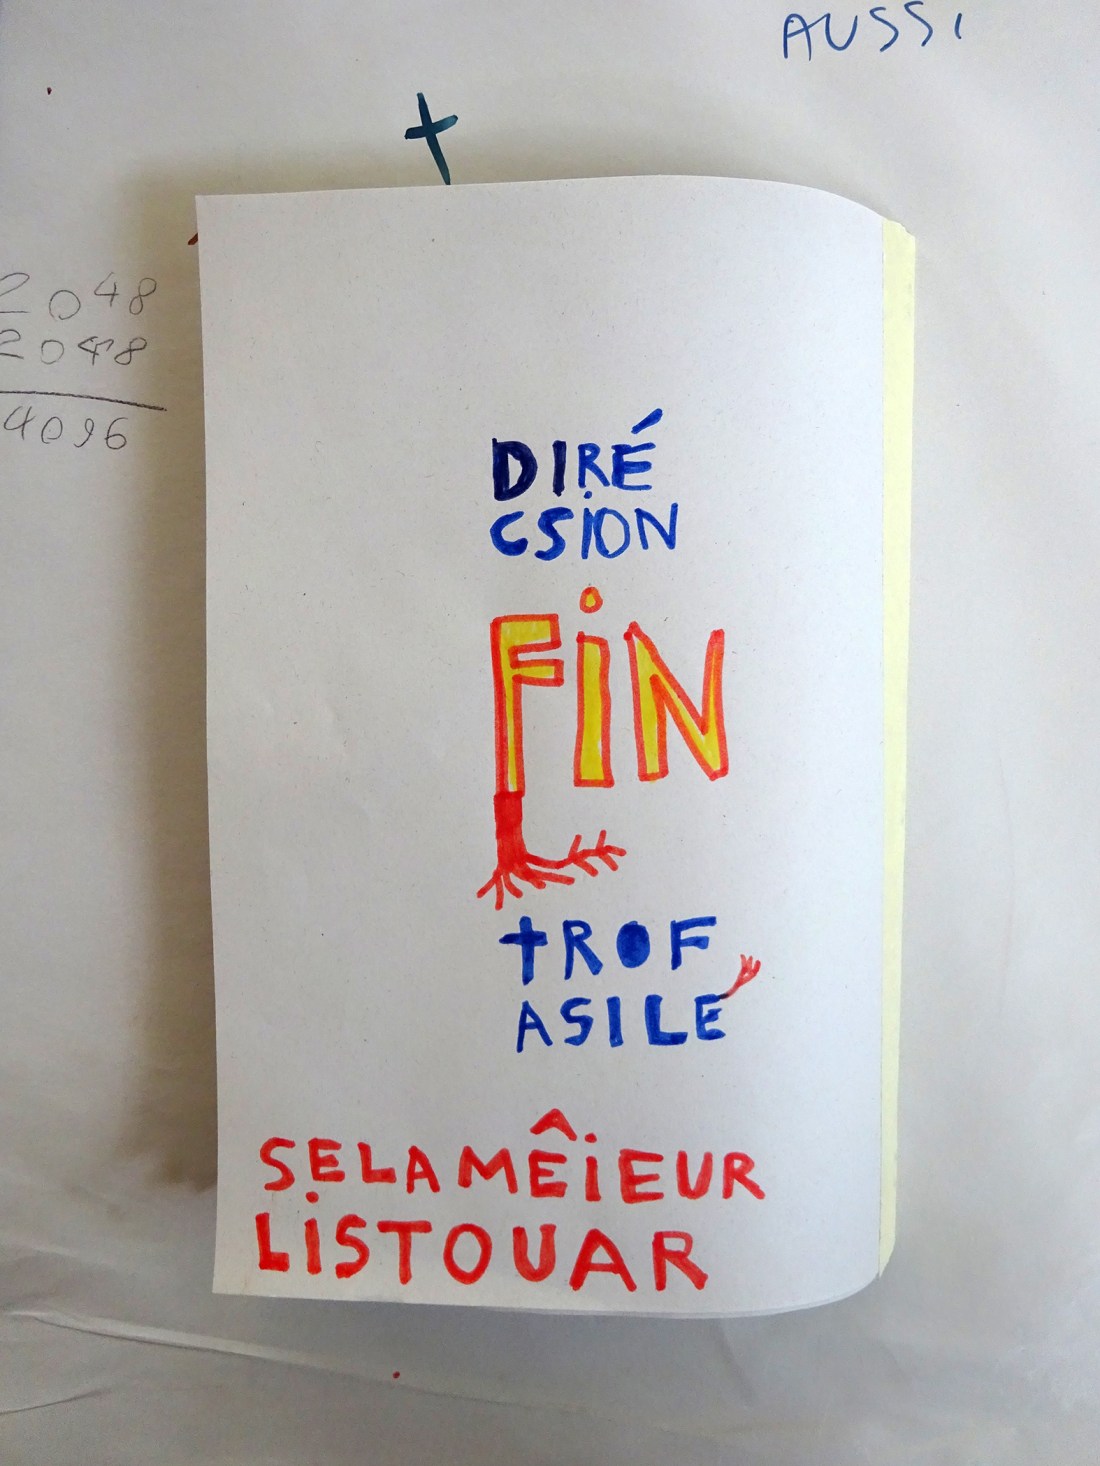 AUSSI
2048
2048
4096
DIRÉ
CSION
FiN
tROF
ASILE
SELAMÊiEUR
LiSTOUAR